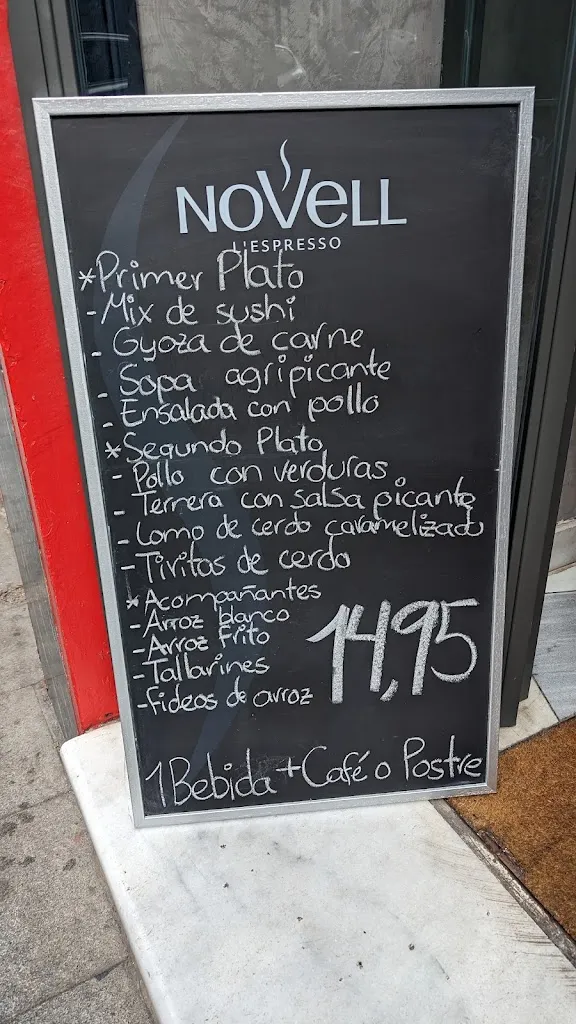 NOVELL
L'ESPRESSO
*Primer Plato
-Mix de sushi
- Gyoza de carne
- Sopa agripicante
- Ensalada con pollo
*Segundo Plato
- Pollo con verduras
- Ternera con salsa picante
- Lomo de cerdo caramelizado
- Tiritas de cerdo
*Acompañantes
-Arroz blanco
-Arroz Frito
-Tallarines
-Fideos de arroz
14,95
1 Bebida + Café o Postre